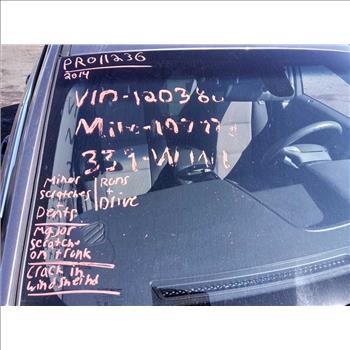 PRO11236
2014
VIN-120380
Minor
scratches
Dents
Runs
+
Drive
Major
scratche
on trunk
Crack in
windsheild